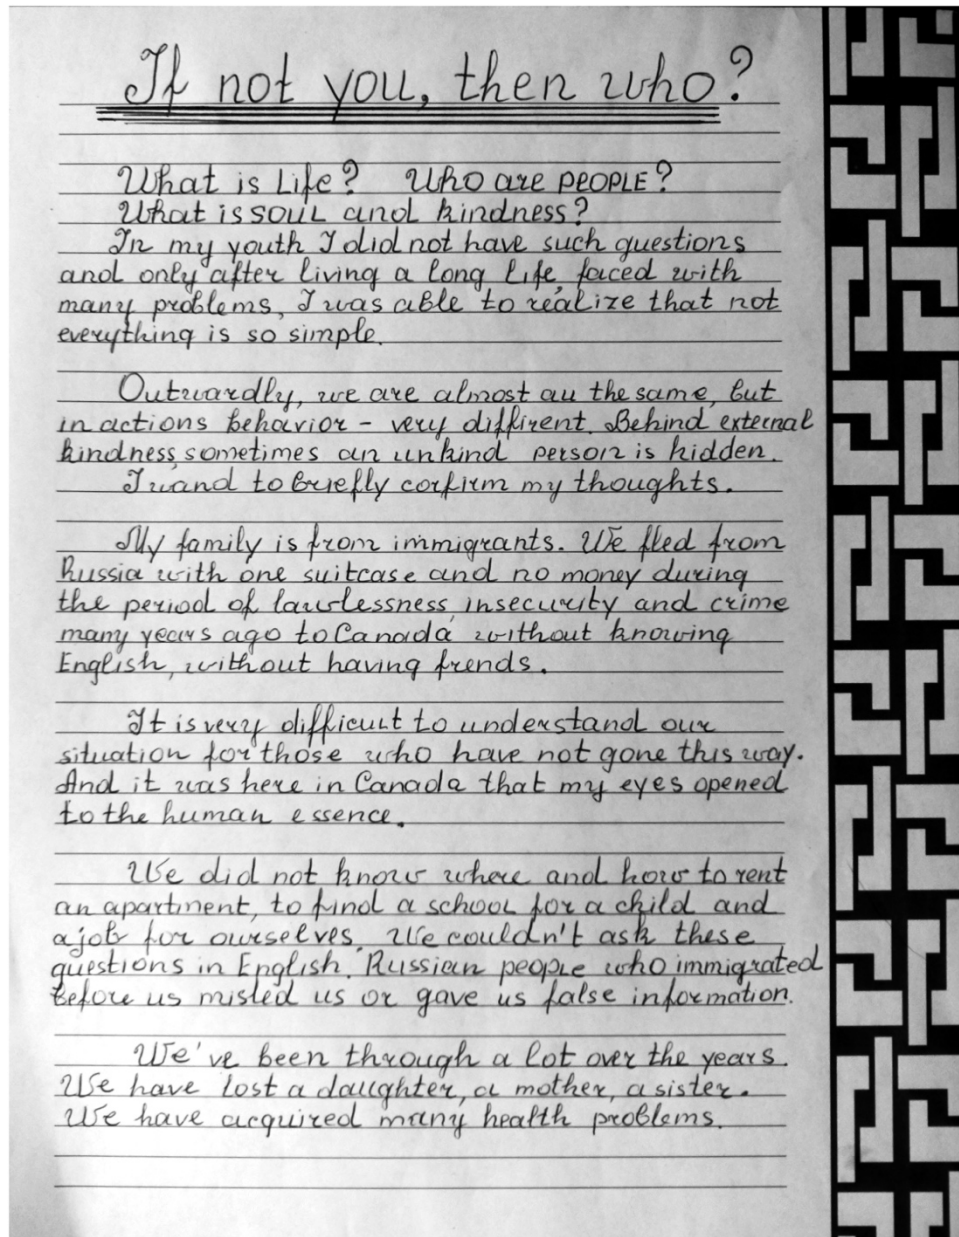 If not you, then who?
What is Life? Who are PEOPLE?
What is SOUL and kindness?
In my youth I did not have such questions
and only after living a long life, faced with
many problems, I was able to realize that not
everything is so simple.
Outwardly, we are almost all the same, but
in actions behavior - very diffirent. Behind external
kindness, sometimes an unkind person is hidden.
I wand to briefly corfirm my thoughts.
My family is from immigrants. We fled from
Russia with one suitcase and no money during
the period of lawlessness, insecurity and crime
many years ago to Canada, without knowing
English, without having frends.
It is very difficult to understand our
situation for those who have not gone this way.
And it was here in Canada that my eyes opened
to the human essence.
We did not know where and how to rent
an apartment, to find a school for a child and
a job for ourselves. We couldn't ask these
questions in English. Russian people who immigrated
before us misled us or gave us false information.
We've been through a lot over the years.
We have lost a daughter, a mother, a sister.
We have acquired many health problems.